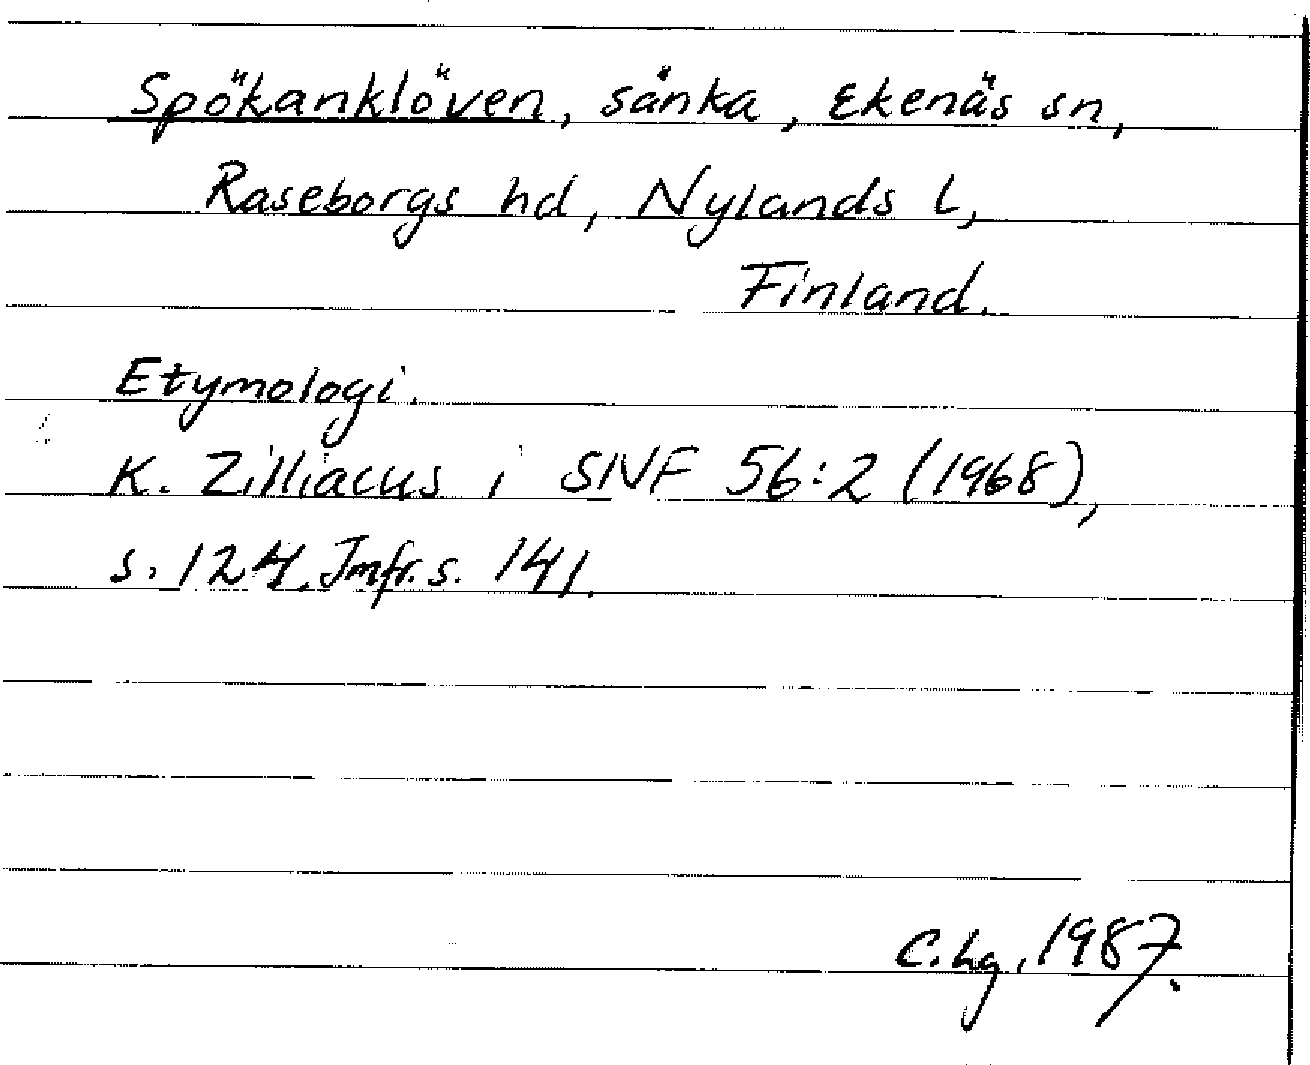 Spökanklöven, sänka, Ekenäs sn,
Raseborgs hd, Nylands l,
Finland.
Etymologi.
K. Zilliacus i SNF 56:2 (1968),
s. 124. Jmfr. s. 141.
C. hg, 1987.